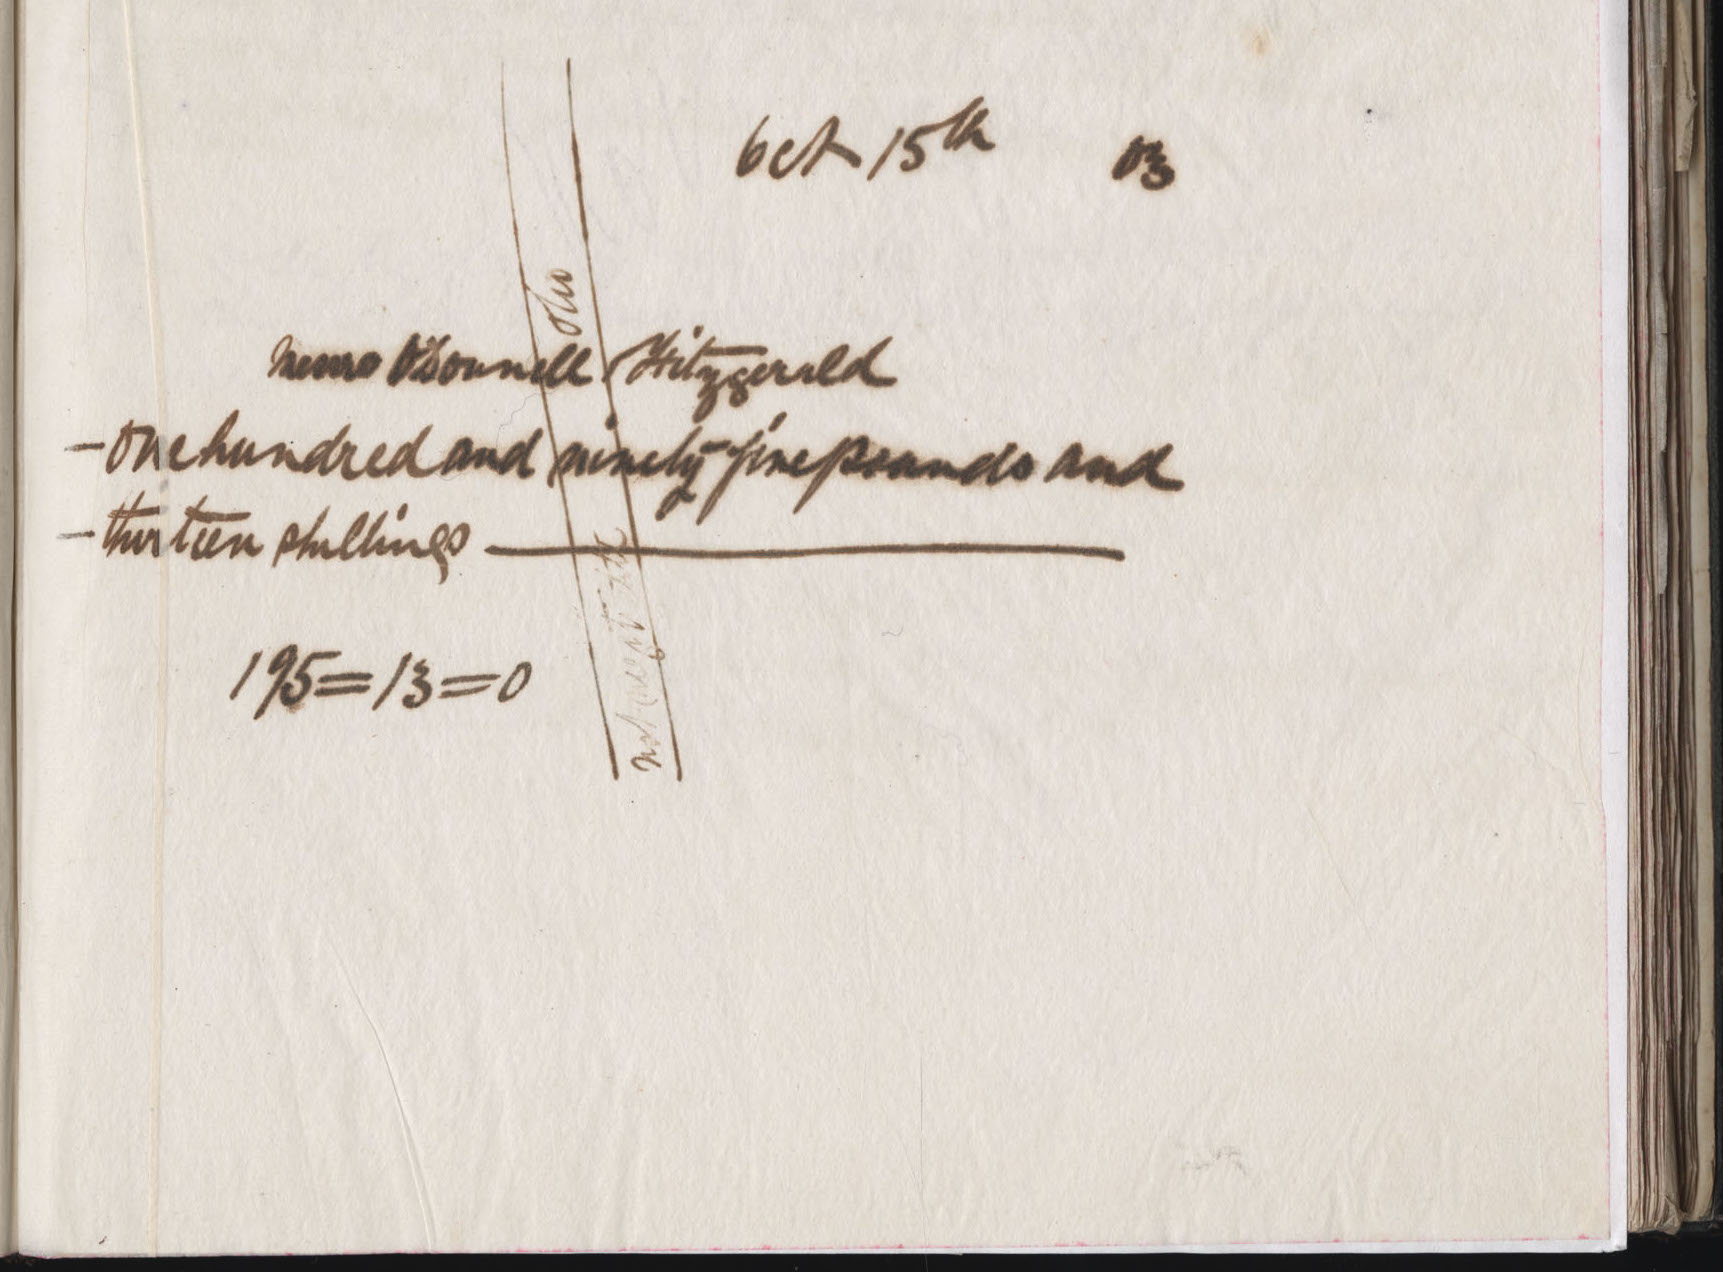 Oct 15th 03
Messrs O'Donnell Fitzgerald
- One hundred and ninety five pounds and
- thirteen shillings
195=13=0
not negotiable